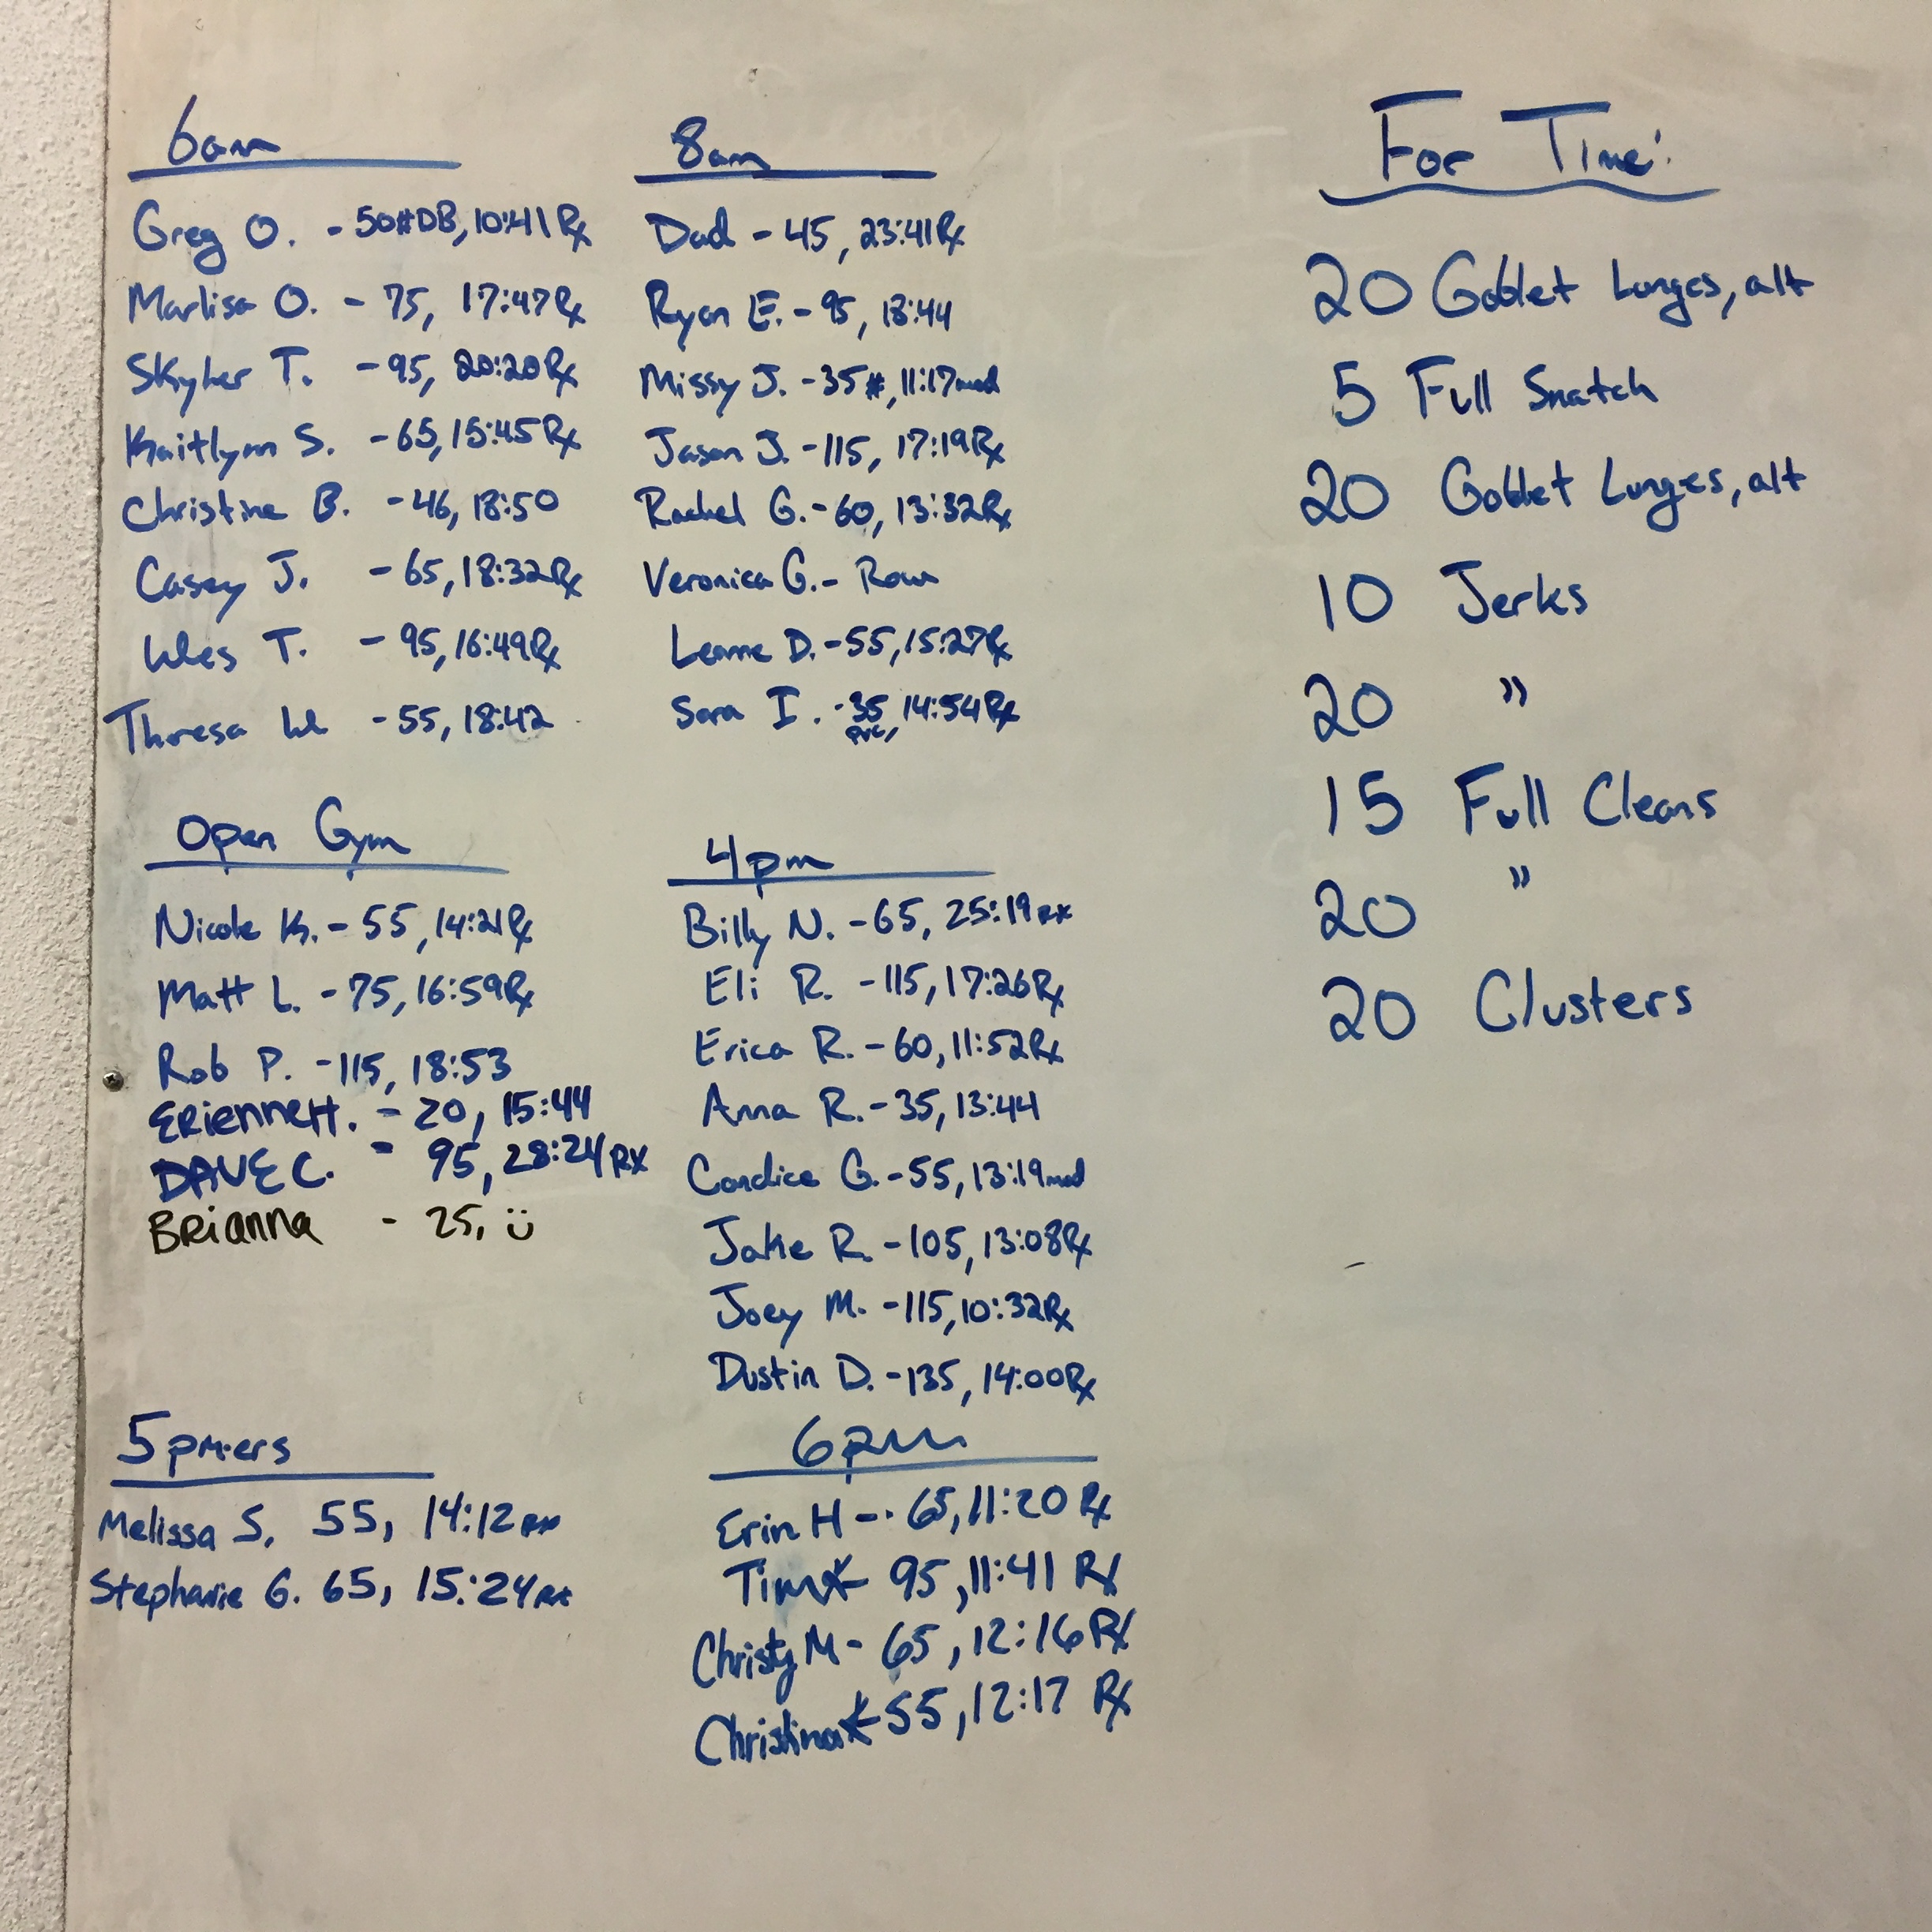 6am
Greg O. - 50#DB, 10:41 Rx
Marlisa O. - 75, 17:47 Rx
Skyler T. - 95, 20:20 Rx
Kaitlynn S. - 65, 15:45 Rx
Christine B. - 46, 18:50
Casey J. - 65, 18:32 Rx
Wes T. - 95, 16:49 Rx
Theresa W - 55, 18:42
8am
Dad - 45, 23:41 Rx
Ryan E. - 95, 18:44
Missy J. - 35#, 11:17 mod
Jason J. - 115, 17:19 Rx
Rachel G. - 60, 13:32 Rx
Veronica G. - Row
Leanne D. - 55, 15:27 Rx
Sara I. - 35, 14:54 Rx
pvc,
Open Gym
Nicole K. - 55, 14:21 Rx
Matt L. - 75, 16:59 Rx
Rob P. - 115, 18:53
ERienne H. - 20, 15:44
DAVE C. - 95, 28:24 RX
BRianna - 25, ü
4pm
Billy N. - 65, 25:19 RX
Eli R. - 115, 17:26 Rx
Erica R. - 60, 11:52 Rx
Anna R. - 35, 13:44
Candice G. - 55, 13:19 mod
Jake R. - 105, 13:08 Rx
Joey M. - 115, 10:32 Rx
Dustin D. - 135, 14:00 Rx
5pm-ers
Melissa S. 55, 14:12 RX
Stephanie G. 65, 15:24 RX
6pm
Erin H -- 65, 11:20 Rx
Tim K- 95, 11:41 Rx
Christy M - 65, 12:16 Rx
Christina K- 55, 12:17 Rx
For Time:
20 Goblet Lunges, alt
5 Full Snatch
20 Goblet Lunges, alt
10 Jerks
20 "
15 Full Cleans
20 "
20 Clusters